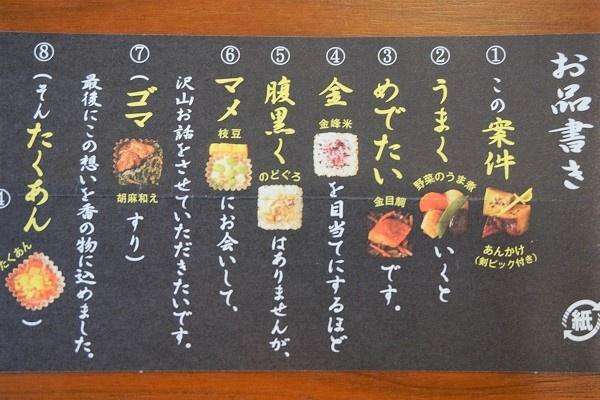 お品書き
① この案件
あんかけ
(剣ピック付き)
② うまくいくと
野菜のうま煮
③ めでたいです。
金目鯛
④ 金を目当てにするほど
金峰米
⑤ 腹黒くはありませんが、
のどぐろ
⑥ マメにお会いして、
枝豆
沢山お話をさせていただきたいです。
⑦ (ゴマすり)
胡麻和え
最後にこの想いを番の物に込めました。
⑧ (そんたくあん)
たくあん
紙